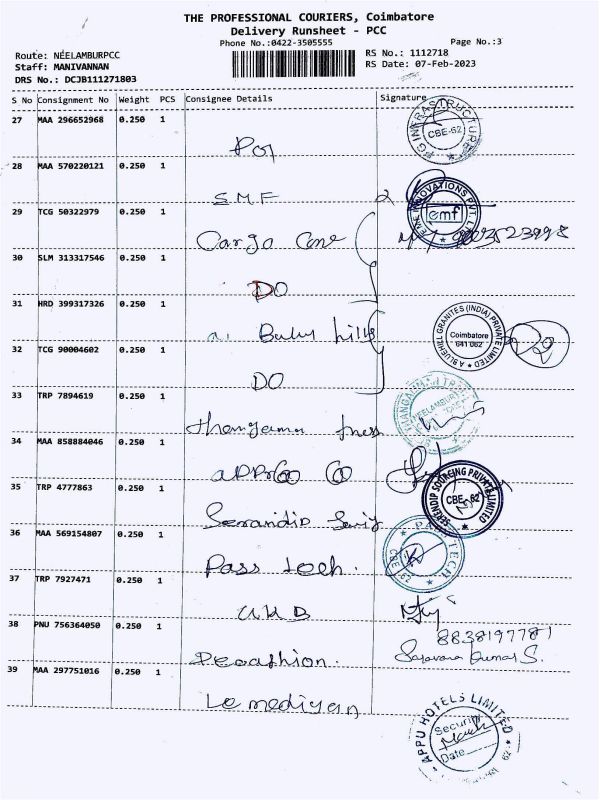 THE PROFESSIONAL COURIERS, Coimbatore
Delivery Runsheet - PCC
Phone No.:0422-3505555
Page No.:3
Route: NEELAMBURPCC
RS No.: 1112718
Staff: MANIVANNAN
RS Date: 07-Feb-2023
DRS No.: DCJB111271803
S No Consignment No Weight PCS Consignee Details Signature
27 MAA 296652968 0.250 1
FG INFRASTRUCTURE CBE-62
28 MAA 570220121 0.250 1
SMF
INNOVATIONS PVT. emf
29 TCG 50322979 0.250 1
Cargo
30 SLM 313317546 0.250 1
DO
31 HRD 399317326 0.250 1
hills
ABLUEHILL GRANITES (INDIA) PRIVATE LIMITED Coimbatore 641 062
32 TCG 90004602 0.250 1
DO
33 TRP 7894619 0.250 1
34 MAA 858884046 0.250 1
35 TRP 4777863 0.250 1
SERENDIP SOURCING PRIVATE LIMITED CBE-62
36 MAA 569154807 0.250 1
Pass tech.
PASS TECH
37 TRP 7927471 0.250 1
38 PNU 756364050 0.250 1
8838197787
39 MAA 297751016 0.250 1
Le mediyan
APPU HOTELS LIMITED Security Date